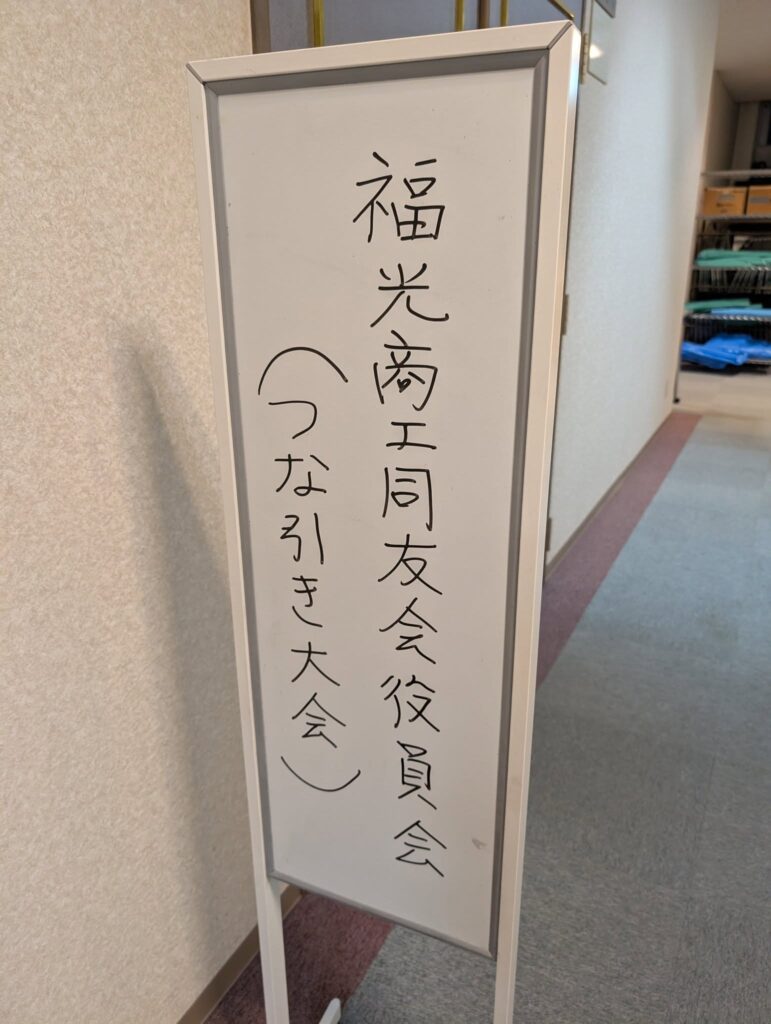 福光商工同友会役員会
（つな引き大会）